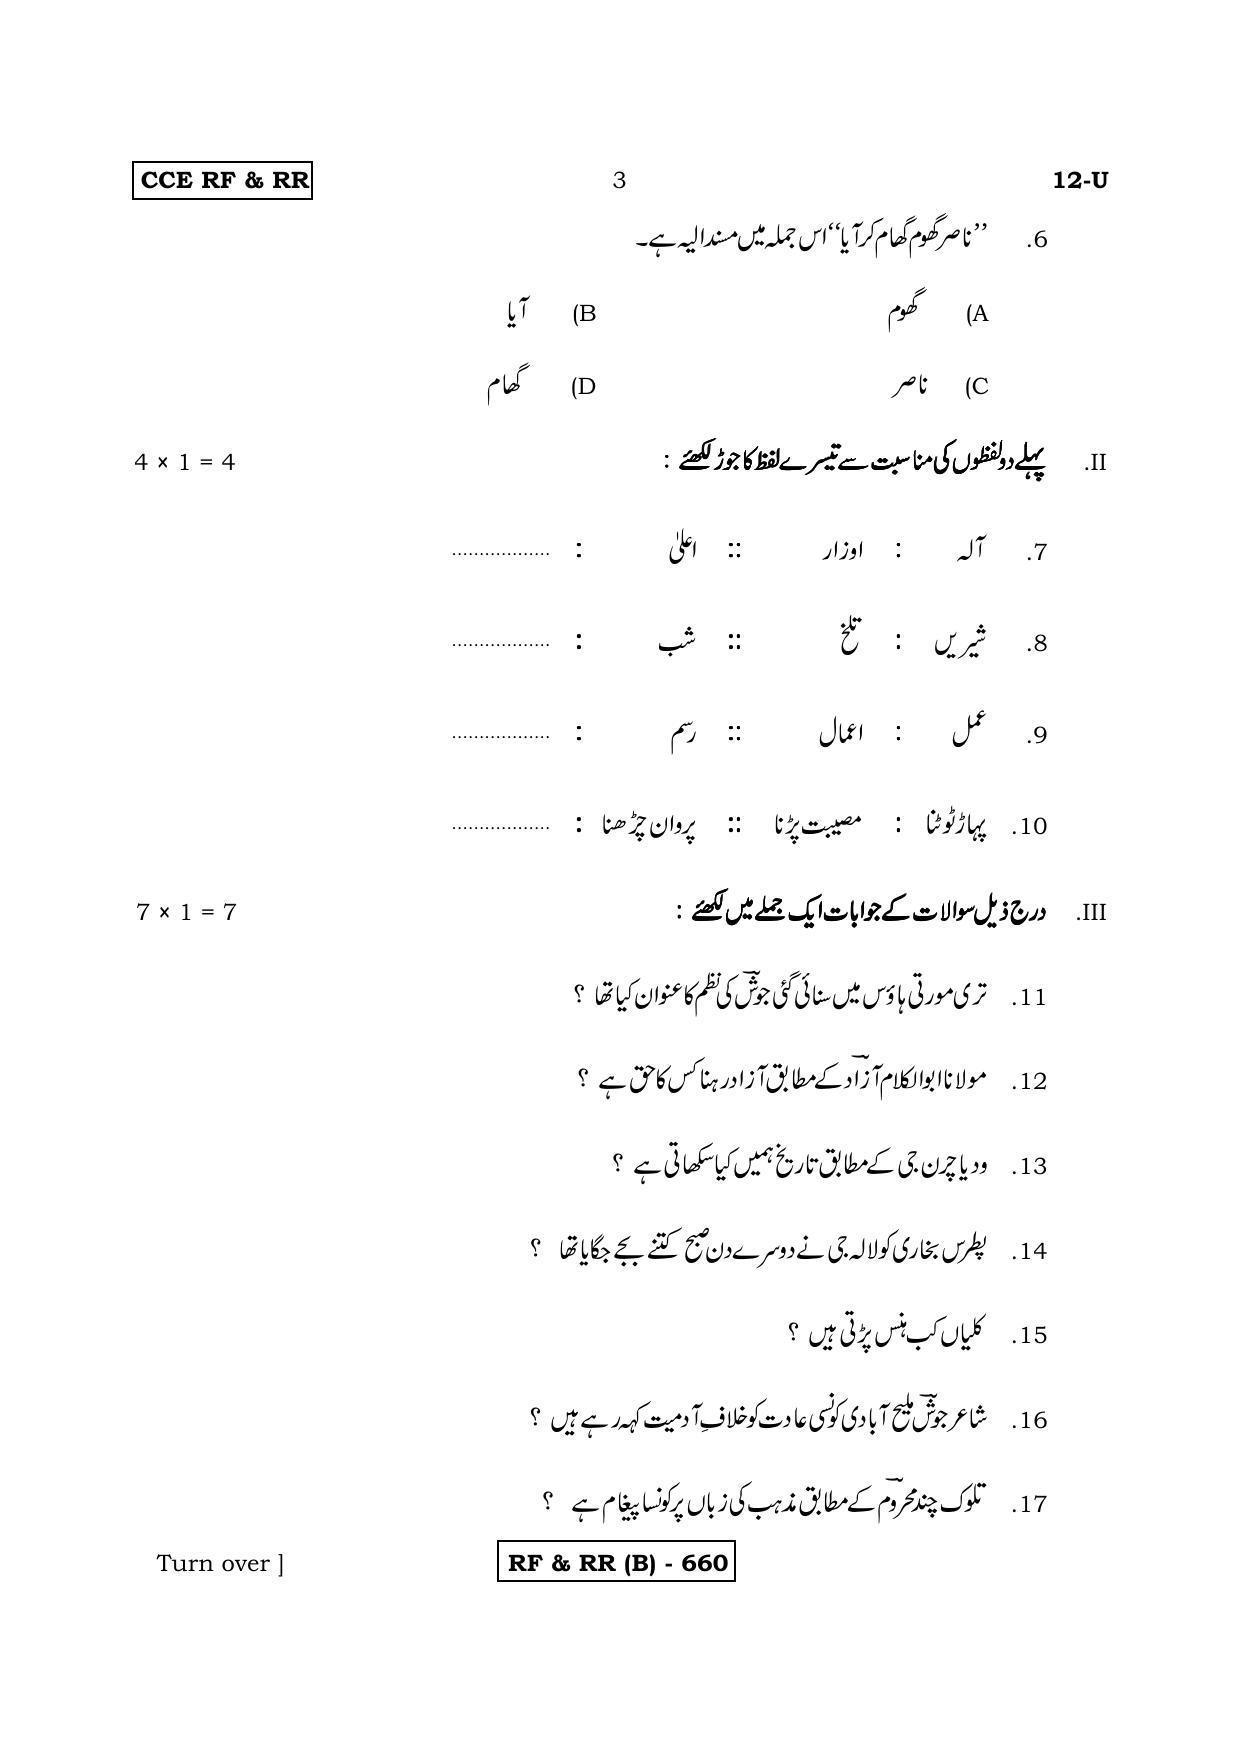 CCE RF & RR 3 12-U
6. ’’ناصر گھوم گھام کر آیا‘‘ اس جملہ میں مسند الیہ ہے۔
(A گھوم (B آیا
(C ناصر (D گھام
II. پہلے دو لفظوں کی مناسبت سے تیسرے لفظ کا جوڑ لکھئے : 4 × 1 = 4
7. آلہ : اوزار :: اعلیٰ : ..................
8. شیریں : تلخ :: شب : ..................
9. عمل : اعمال :: رسم : ..................
10. پہاڑ ٹوٹنا : مصیبت پڑنا :: پروان چڑھنا : ..................
III. درج ذیل سوالات کے جوابات ایک جملے میں لکھئے : 7 × 1 = 7
11. تری مورتی ہاؤس میں سنائی گئی جوشؔ کی نظم کا عنوان کیا تھا ؟
12. مولانا ابوالکلام آزادؔ کے مطابق آزاد رہنا کس کا حق ہے ؟
13. ودیا چرن جی کے مطابق تاریخ ہمیں کیا سکھاتی ہے ؟
14. پطرس بخاری کو لالہ جی نے دوسرے دن صبح کتنے بجے جگایا تھا ؟
15. کلیاں کب ہنس پڑتی ہیں ؟
16. شاعر جوشؔ ملیح آبادی کونسی عادت کو خلافِ آدمیت کہہ رہے ہیں ؟
17. تلوک چند محرومؔ کے مطابق مذہب کی زباں پر کونسا پیغام ہے ؟
RF & RR (B) - 660 Turn over ]